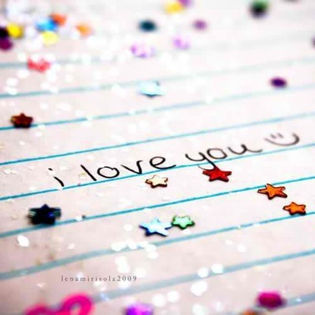 i love you :)
lenamirisola2009